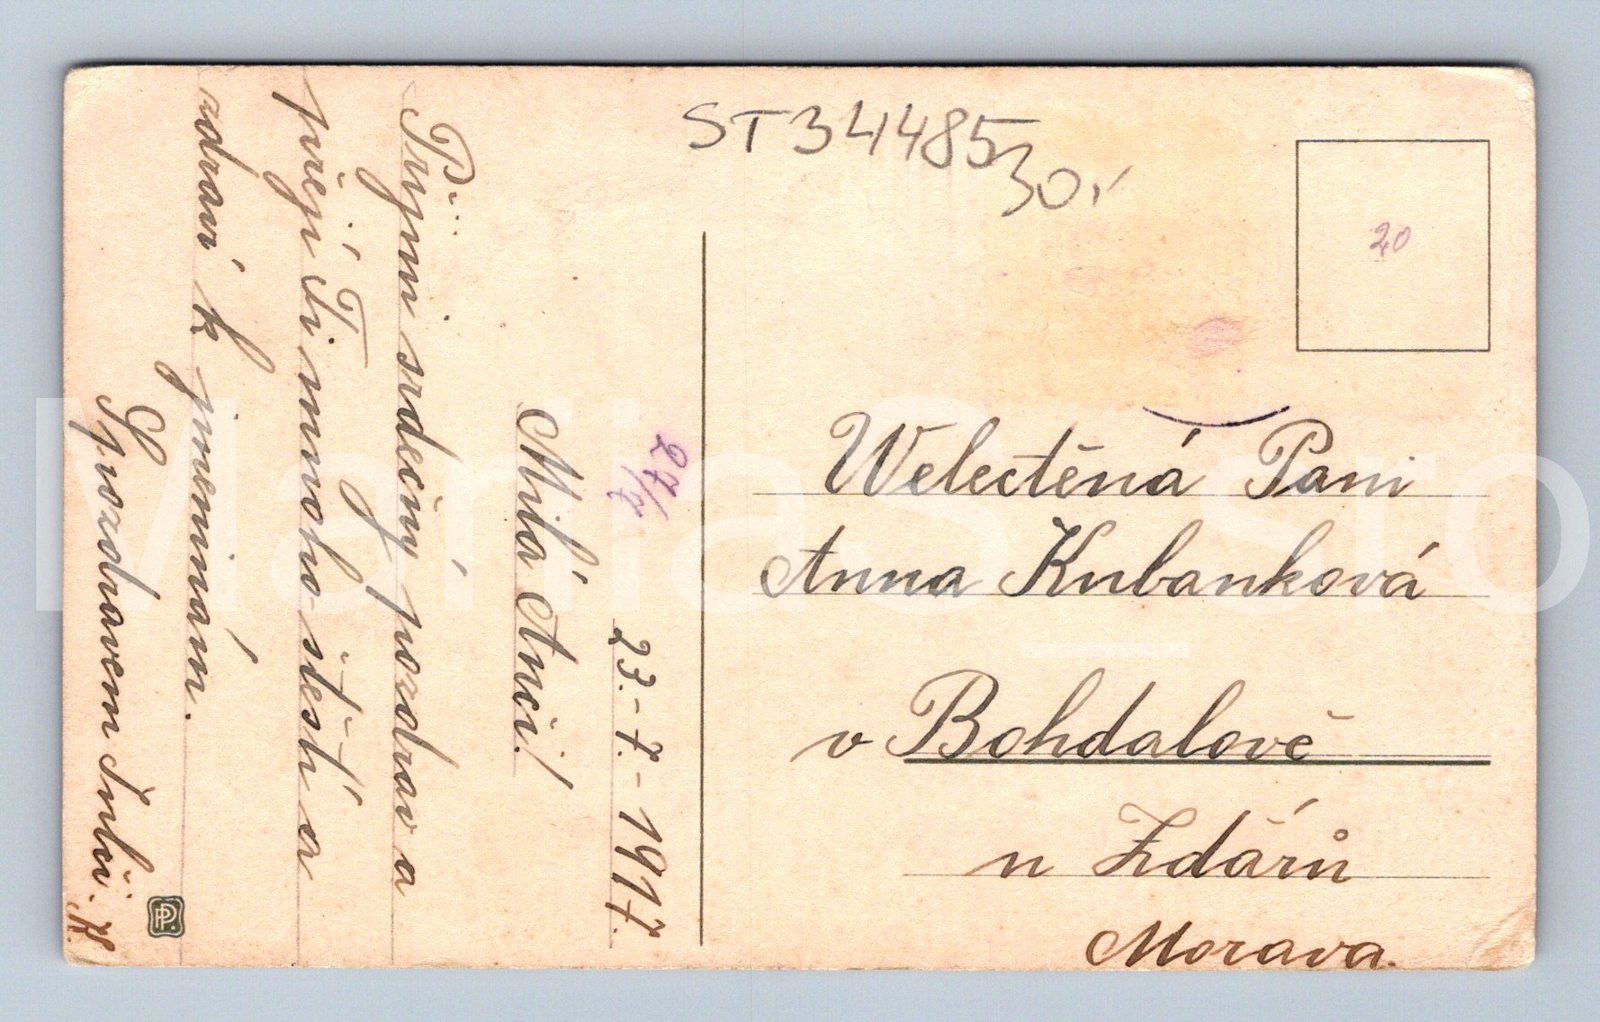 ST34485
30,-
20
27/7
23.-7.-1917.
Milá Anci!
Přijmi srdečný pozdrav a
přejí Ti mnoho štěstí a
zdraví k jmeninám.
S pozdravem
Welectěná Pani
Anna Kubanková
v Bohdalově
u Zdárů
Morava.
PP.